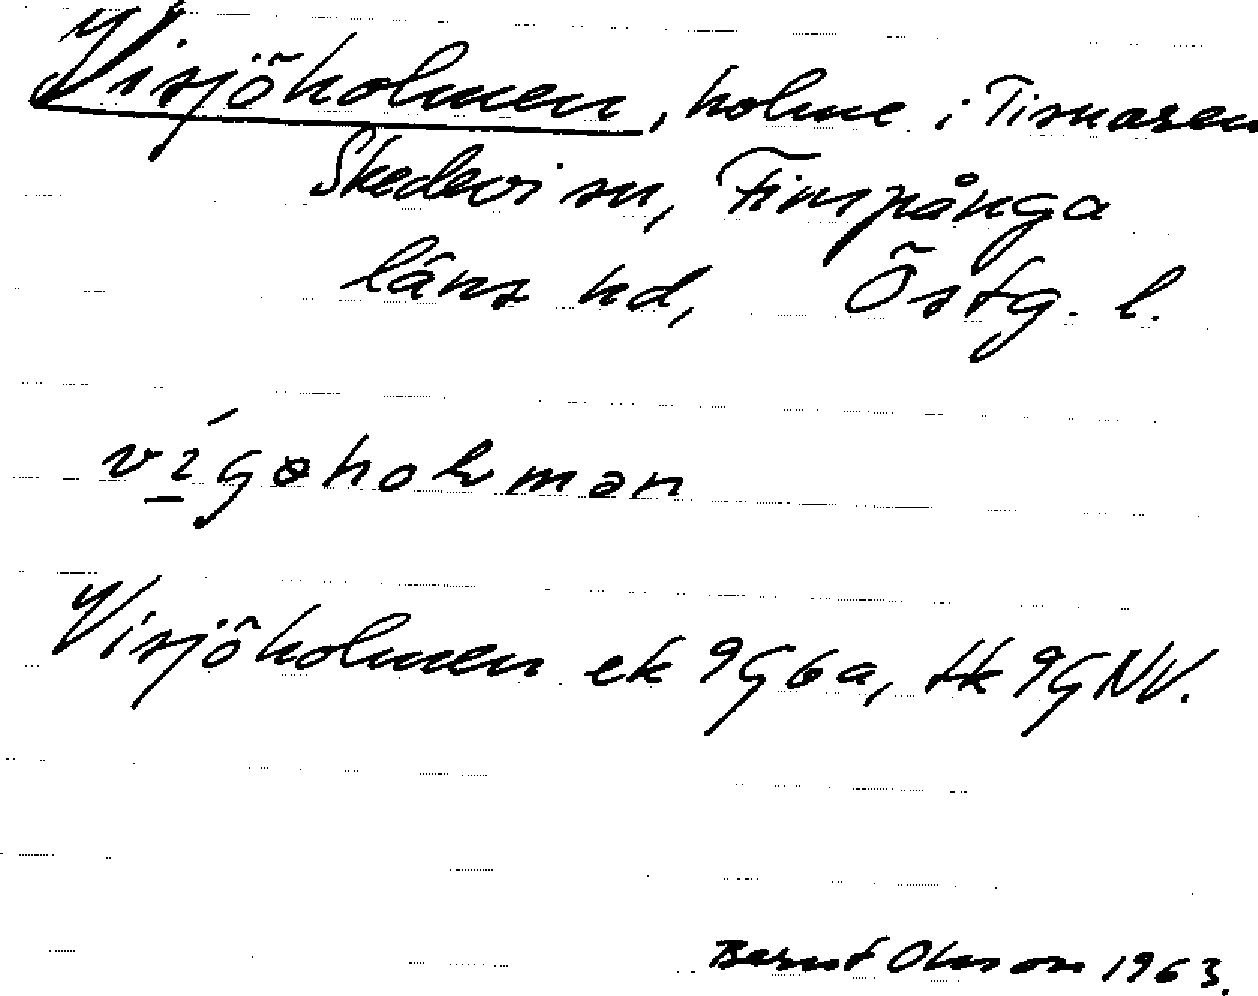 Visjöholmen, holme i Tisnaren
Skedevi sn, Finspånga
läns hd, Östg. l.
vígøholman
Visjöholmen ek 9G6a, tk 9GNV.
Bernt Olsson 1963.